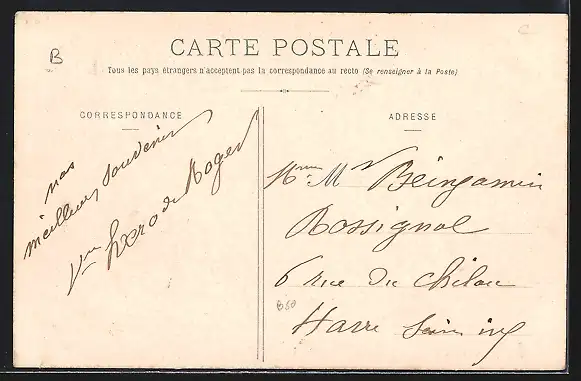 B
C
CARTE POSTALE
Tous les pays étrangers n'acceptent pas la correspondance au recto (Se renseigner à la Poste)
CORRESPONDANCE
nos
meilleurs souvenirs
Roger
ADRESSE
Mme Mr Beingamin
Rossignol
6 rue du Chilou
Havre Seine inf
B50